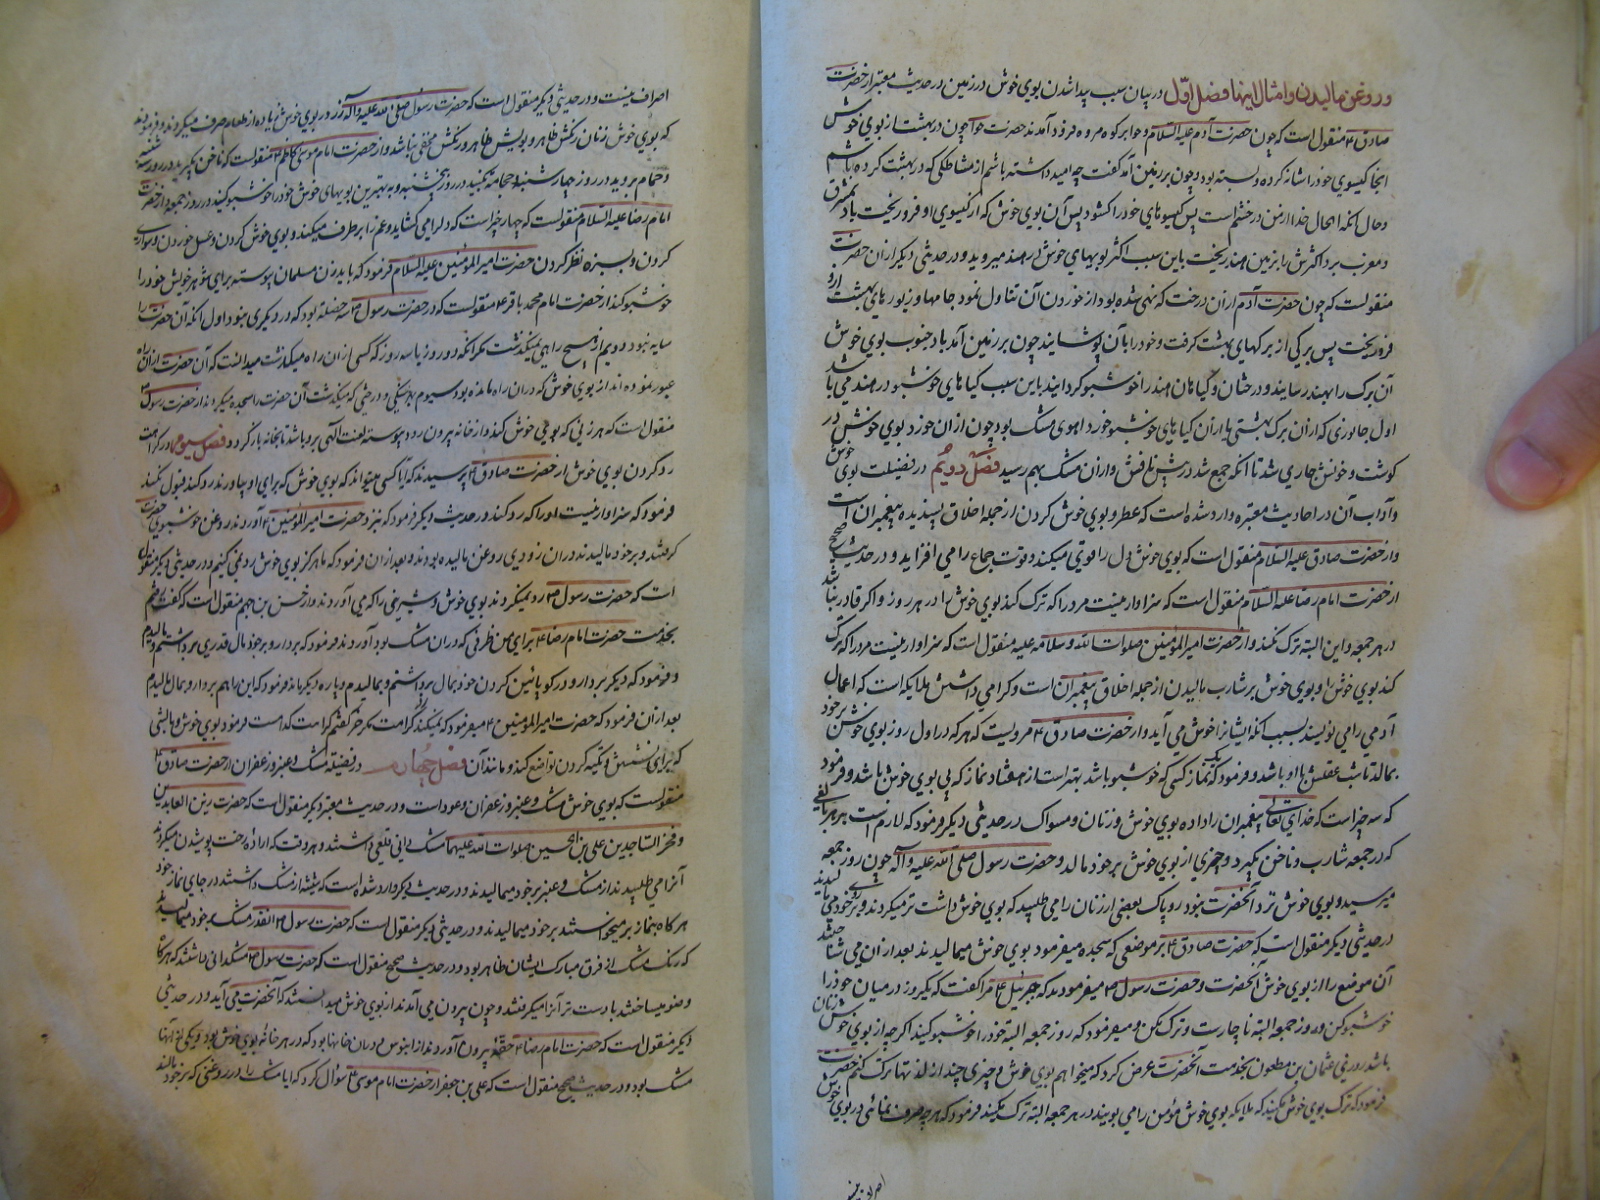 و روغن مالیدن و امثال اینها فصل اوّل در بیان سبب پیدا شدن بوی خوش در زمین در حدیث معتبر از حضرت
صادق ۴ منقول است که چون حضرت آدم علیه السلام و حوا بر کوه مروه فرود آمدند حضرت حوا چون در بهشت از بوی خوش
انجا گیسوی خود را شانه کرده و بسته بود و چون بر زمین آمد گفت چه امید داشته باشم از مشاطگی که در بهشت کرده باشم
و حال انکه الحال خدا از من در خشم است پس گیسوهای خود را کشود پس آن بوی خوش که از گیسوی او فرو ریخت باد بمشرق
و مغرب برد اکثرش را بزمین هند ریخت باین سبب اکثر بویهای خوش در هند میروید و در حدیثی دیگر از ان حضرت
منقولست که چون حضرت آدم از ان درخت که نهی شده بود از خوردن آن تناول نمود جامها و زیورهای بهشت ازو
فرو ریخت پس برکی از برکهای بهشت گرفت و خود را بآن پوشانید چون بر زمین آمد باد جنوب بوی خوش
آن برک را بهند رسانید و درختان و گیاهان هند را خوشبو گردانید باین سبب گیاهای خوشبو در هند می باشد
اول جانوری که از ان برک بهشتی یا از ان گیاهای خوشبو خورد اهوی مشک بود چون از ان خورد بوی خوش در
گوشت و خونش جاری شد تا انکه جمع شد در پیش نافش و ازان مشک بهم رسید فصل دویم در فضیلت بوی خوش
و آداب آن در احادیث معتبره وارد شده است که عطر و بوی خوش کردن از جمله اخلاق پسندیده پیغمبران است
و از حضرت صادق علیه السلام منقول است که بوی خوش دل را قوی میکند و قوت جماع را می افزاید و در حدیث صحیح
از حضرت امام رضا علیه السلام منقول است که سزاوار نیست مرد را که ترک کند بوی خوش را در هر روز و اگر قادر نباشد
در هر جمعه و این البته ترک نکند و از حضرت امیر المؤمنین صلوات الله و سلامه علیه منقول است که سزاوار نیست مرد را که ترک
کند بوی خوش او بوی خوش بر شارب مالیدن از جمله اخلاق پیغمبران است و گرامی داشتن ملایکه است که اعمال
آدمی را می نویسند بسبب انکه ایشانرا خوش می آید و از حضرت صادق ۴ مرویست که هر که در اول روز بوی خوش بر خود
بمالد تا شب عقلش با او باشد و فرمود که یک نماز کسی که خوشبو باشد بهتر است از هفتاد نماز که بی بوی خوش باشد و فرمود
که سه چیز است که خدای تعالی پیغمبران را داده بوی خوش و زنان و مسواک در حدیثی دیگر فرمود که لازم است بر هر بالغی
که در جمعه شارب و ناخن بگیرد و چیزی از بوی خوش بر خود مالد و حضرت رسول صلی الله علیه و آله چون روز جمعه
میرسید و بوی خوش نزد آنحضرت نبود روپاک بعضی از زنان را می طلبید که بوی خوش داشت تر میکردند و بر روی خود می مالیدند
در حدیثی دیگر منقول است که حضرت صادق ۴ بر موضعی که سجده میفرمود بوی خوش میمالیدند بعد از ان می شناختند
آن موضع را از بوی خوش آنحضرت و حضرت رسول ص میفرمودند که جبرئیل ۴ مرا گفت که یکروز در میان خود را
خوشبو کن و روز جمعه البته ناچارست و ترک مکن و میفرمود که روز جمعه البته خود را خوشبو کنید اگر چه از بوی خوش زنان
باشد روزی عثمان بن مظعون بخدمت آنحضرت عرض کرد که میخواهم بوی خوش و چیزی چند از لذتها ترک کنم حضرت
فرمود که ترک بوی خوش مکنید که ملایکه بوی خوش مؤمن را می بویند در هر جمعه البته ترک مکنید فرمود که هر چه صرف نمائی در بوی خوش
اصراف نیست
اصراف نیست و در حدیثی دیگر منقول است که حضرت رسول صلی الله علیه و آله زر در بوی خوش زیاده از طعام صرف میکردند و فرمودند
که بوی خوش زنان رنگش ظاهر و بویش ظاهر و رنگش مخفی نباشد و از حضرت امام موسی کاظم ۴ منقولست که ناخن بگیرید در روز سه شنبه
و حمام بروید در روز چهارشنبه و حجامة بکنید در روز پنجشنبه و به بهترین بویهای خوش خود را خوشبو کنید در روز جمعه و از حضرت
امام رضا علیه السلام منقولست که چهار چیز است که دلرا می کشاید و غم را برطرف میکند و بوی خوش کردن و عسل خوردن و سواری
کردن و بسبزه نظر کردن حضرت امیر المؤمنین علیه السلام فرمود که باید زن مسلمان پیوسته برای شوهر خویش خود را
خوشبو کند از حضرت امام محمد باقر ۴ منقولست که در حضرت رسول ص سه خصلة بود که در دیگری نبود اول انکه آن حضرت را
سایه نبود دویم از هیچ راهی نمیگذشت مگر انکه دو روز یا سه روز که کسی از ان راه میگذشت میدانست که آن حضرت از ان راه
عبور نموده اند از بوی خوش که دران راه مانده بود سیوم بهر سنگی و درختی که میگذشت آن حضرت را سجده میکردند از حضرت رسول ص
منقول است که هر زنی که بوی خوش کند و از خانه بیرون رود پیوسته لعنت الهی برو باشد تا بخانه باز گردد فصل سیوم در کراهت
رد کردن بوی خوش از حضرت صادق ۴ پرسیدند که ایا کسی میتواند که بوی خوش که برای او بیاورند رد کند قبول نکند
فرمود که سزاوار نیست او را که رد کند و در حدیث دیگر فرمود که نزد حضرت امیر المؤمنین ۴ آوردند روغن خوشبوی حضرت
گرفتند و بر خود مالیدند دران زودی روغن مالیده بودند و بعد از ان فرمود که ما هرگز بوی خوش رد نمی کنیم و در حدیثی دیگر منقول
است که حضرت رسول ص رد نمیکردند بوی خوش و شیرینی را که می آوردند و از حسن بن جهم منقول است که گفت رفتم
بخدمت حضرت امام رضا ۴ برای من ظرفی که دران مشک بود آوردند فرمود که بردار و بر خود مال قدری برداشتم و مالیدم
و فرمود که دیگر بردار و در گو پائین گردن خود بمال برداشتم و بمالیدم و پاره دیگر ماند فرمود که این را هم بردار و بمال مالیدم
بعد از ان فرمود که حضرت امیر المومنین ۴ میفرمود که نمیکند کرامت مگر خر گفتم کرامت کدامست فرمود بوی خوش و بالشی
که برای نشستن و تکیه کردن تواضع کند و مانند آن فصل چهارم در فضیلة مشک و عنبر و زعفران از حضرت صادق ۴
منقولست که بوی خوش مشک و عنبر و زعفران و عود است و در حدیث معتبر دیگر منقول است که حضرت زین العابدین
و فخر الساجدین علی بن الحسین صلوات الله علیهما مشک دانی قلعی داشتند و هر وقت که ارادهٔ رخت پوشیدن میکردند
آنرا می طلبیدند از مشک و عنبر بر خود میمالیدند و در حدیث دیگر وارد شده است که شیشهٔ از مشک داشتند در جای نماز خود
هر گاه بنماز بر میخواستند بر خود میمالیدند و در حدیثی دیگر منقول است که حضرت رسول ص انقدر مشک بر خود میمالیدند
که رنک مشک از فرق مبارک ایشان ظاهر بود و در حدیث صحیح منقول است که حضرت رسول ص مشکدانی داشتند که هر گاه
وضو میساختند با دست تر آنرا میگرفتند و چون بیرون می آمدند از بوی خوش میدانستند که آنحضرت می آید و در حدیثی
دیگر منقول است که حضرت امام رضا ۴ حقهٔ بیرون آوردند از ابنوس و دران خانها بود که در هر خانهٔ بوی خوش بود و یکی از آنها
مشک بود و در حدیث صحیح منقول است که علی بن جعفر از حضرت امام موسی ۴ سؤال کرد که ایا مشک را در روغنی که بر خود مالند